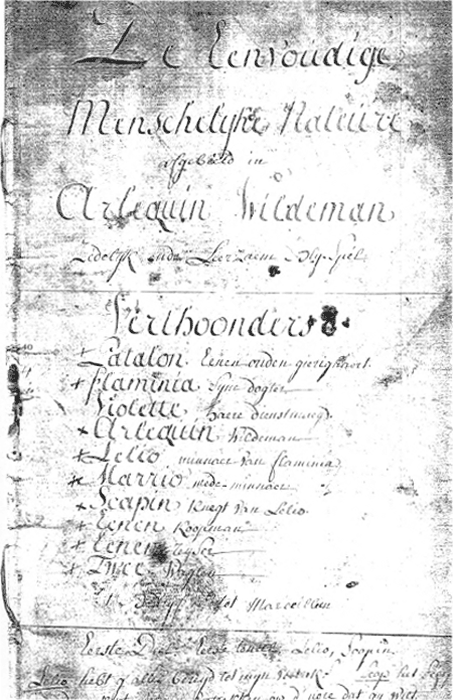 De Eenvoudige
Menschelyke Nateure
afgebeeld in
Arlequin Wildeman
Zedelyk ende Leerzaem Bly-Spel
Verthoonders
+ Patalon Eenen ouden gierighaert.
+ flaminia syne dogter
Violette haere dienstmaegd
+ Arlequin Wildeman
+ Lelio minnaer van flaminia
+ Marrio mede-minnaer
+ Scapin knegt van Lelio
+ Eenen Koopman
+ Eenen
+ Twee
tot Marseillien
Eerste Lelio, Scapin.
Lelio hebt gy alles